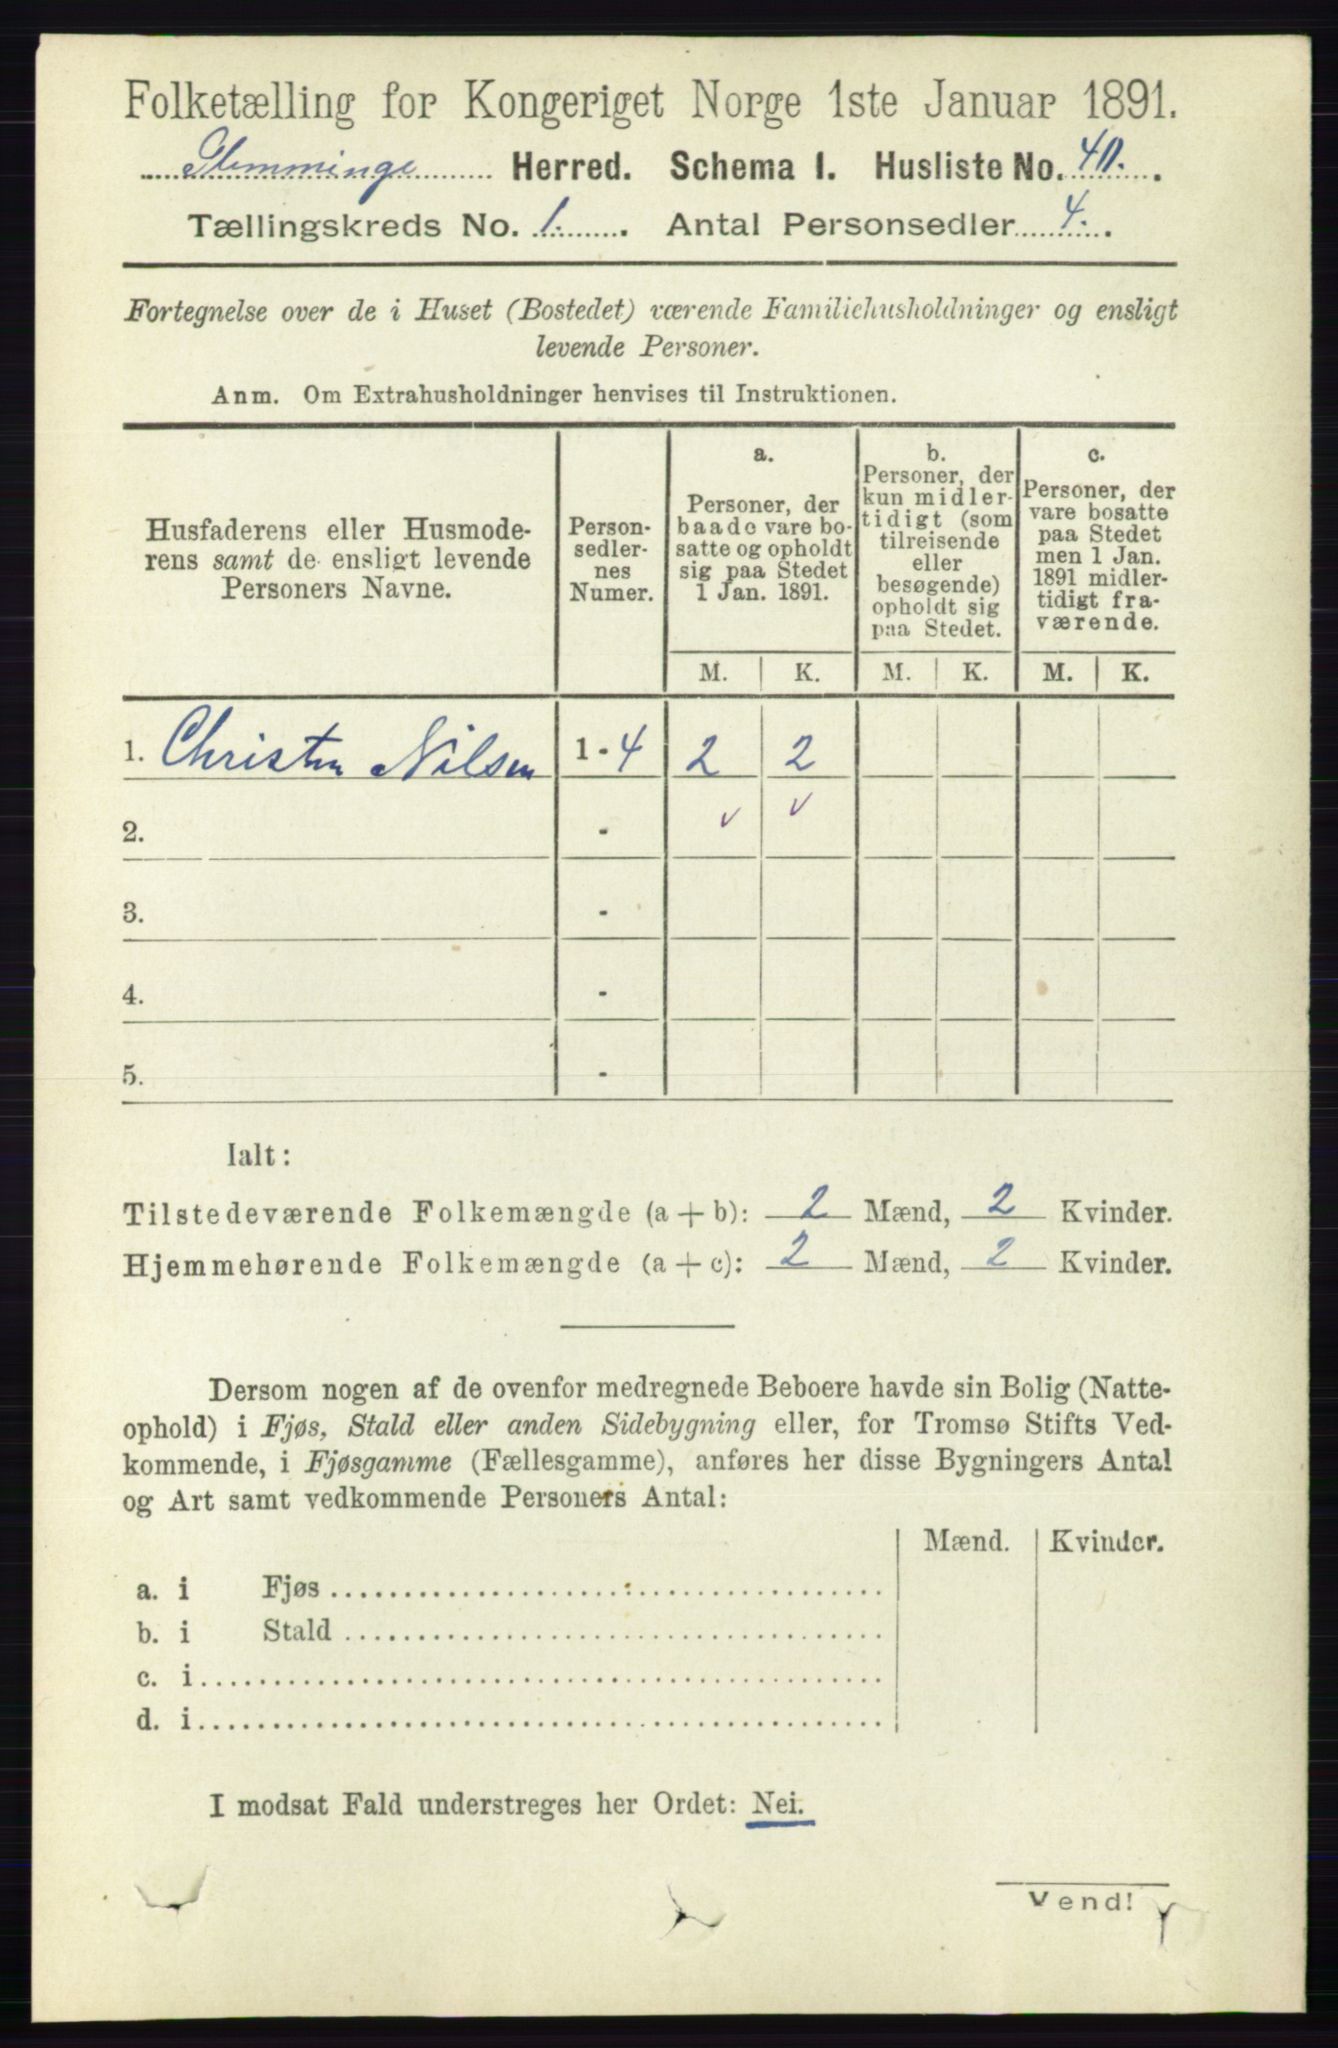 Folketælling for Kongeriget Norge 1ste Januar 1891.
Glemminge Herred. Schema I. Husliste No. 40.
Tællingskreds No. 1. Antal Personsedler 4.
Fortegnelse over de i Huset (Bostedet) værende Familiehusholdninger og ensligt
levende Personer.
Anm. Om Extrahusholdninger henvises til Instruktionen.
Husfaderens eller Husmode-
rens samt de ensligt levende
Personers Navne.
Person-
sedler-
nes
Numer.
a.
Personer, der
baade vare bo-
satte og opholdt
sig paa Stedet
1 Jan. 1891.
b.
Personer, der
kun midler-
tidigt (som
tilreisende
eller
besøgende)
opholdt sig
paa Stedet.
c.
Personer, der
vare bosatte
paa Stedet
men 1 Jan.
1891 midler-
tidigt fra-
værende.
M. K. M. K. M. K.
1. Christen Nilsen 1 - 4 2 2
2. - v v
3. -
4. -
5. -
Ialt:
Tilstedeværende Folkemængde (a + b): 2 Mænd, 2 Kvinder.
Hjemmehørende Folkemængde (a + c): 2 Mænd, 2 Kvinder.
Dersom nogen af de ovenfor medregnede Beboere havde sin Bolig (Natte-
ophold) i Fjøs, Stald eller anden Sidebygning eller, for Tromsø Stifts Ved-
kommende, i Fjøsgamme (Fællesgamme), anføres her disse Bygningers Antal
og Art samt vedkommende Personers Antal:
Mænd. Kvinder.
a. i Fjøs
b. i Stald
c. i
d. i
I modsat Fald understreges her Ordet: Nei.
Vend!